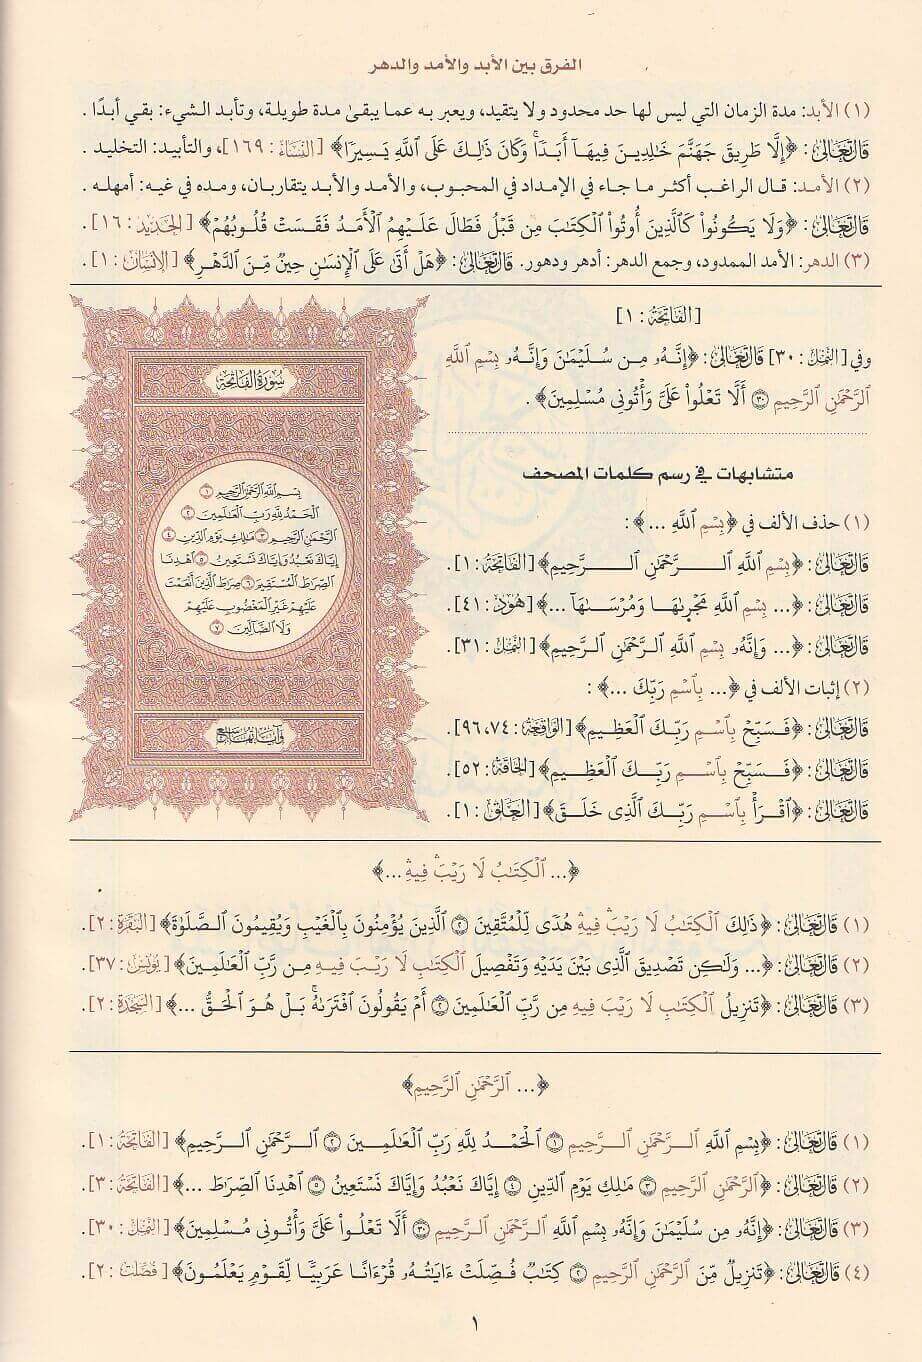 الفرق بين الأبد والأمد والدهر
(١) الأبد: مدة الزمان التي ليس لها حد محدود ولا يتقيد، ويعبر به عما يبقىٰ مدة طويلة، وتأبد الشيء: بقي أبدًا .
قَالَ تَعَالَىٰ: ﴿إِلَّا طَرِيقَ جَهَنَّمَ خَٰلِدِينَ فِيهَآ أَبَدٗاۚ وَكَانَ ذَٰلِكَ عَلَى ٱللَّهِ يَسِيرٗا﴾ [النِّسَاء: ١٦٩]، والتأبيد: التخليد .
(٢) الأمد: قال الراغب أكثر ما جاء في الإمداد في المحبوب، والأمد والأبد يتقاربان، ومده في غيه: أمهله .
قَالَ تَعَالَىٰ: ﴿وَلَا يَكُونُواْ كَٱلَّذِينَ أُوتُواْ ٱلْكِتَٰبَ مِن قَبْلُ فَطَالَ عَلَيْهِمُ ٱلْأَمَدُ فَقَسَتْ قُلُوبُهُمْ﴾ [الحَدِيد: ١٦] .
(٣) الدهر: الأمد الممدود، وجمع الدهر: أدهر ودهور. قَالَ تَعَالَىٰ: ﴿هَلْ أَتَىٰ عَلَى ٱلْإِنسَٰنِ حِينٞ مِّنَ ٱلدَّهْرِ﴾ [الإنسَان: ١] .
[الفَاتِحَة: ١]
وفي [النَّمْل: ٣٠] قَالَ تَعَالَىٰ: ﴿إِنَّهُۥ مِن سُلَيْمَٰنَ وَإِنَّهُۥ بِسْمِ ٱللَّهِ
ٱلرَّحْمَٰنِ ٱلرَّحِيمِ ٣٠ أَلَّا تَعْلُواْ عَلَيَّ وَأْتُونِي مُسْلِمِينَ﴾ .
سُورَةُ الفَاتِحَةِ
بِسْمِ ٱللَّهِ ٱلرَّحْمَٰنِ ٱلرَّحِيمِ ١
ٱلْحَمْدُ لِلَّهِ رَبِّ ٱلْعَٰلَمِينَ ٢
ٱلرَّحْمَٰنِ ٱلرَّحِيمِ ٣ مَٰلِكِ يَوْمِ ٱلدِّينِ ٤
إِيَّاكَ نَعْبُدُ وَإِيَّاكَ نَسْتَعِينُ ٥ ٱهْدِنَا
ٱلصِّرَٰطَ ٱلْمُسْتَقِيمَ ٦ صِرَٰطَ ٱلَّذِينَ أَنْعَمْتَ
عَلَيْهِمْ غَيْرِ ٱلْمَغْضُوبِ عَلَيْهِمْ
وَلَا ٱلضَّآلِّينَ ٧
وَآيَاتُهَا سَبْع
متشابهات في رسم كلمات المصحف
(١) حذف الألف في ﴿بِسْمِ ٱللَّهِ ...﴾:
قَالَ تَعَالَىٰ: ﴿بِسْمِ ٱللَّهِ ٱلرَّحْمَٰنِ ٱلرَّحِيمِ﴾ [الفَاتِحَة: ١].
قَالَ تَعَالَىٰ: ﴿... بِسْمِ ٱللَّهِ مَجْر۪ىٰهَا وَمُرْسَىٰهَآ ...﴾ [هُود: ٤١].
قَالَ تَعَالَىٰ: ﴿... وَإِنَّهُۥ بِسْمِ ٱللَّهِ ٱلرَّحْمَٰنِ ٱلرَّحِيمِ﴾ [النَّمْل: ٣١].
(٢) إثبات الألف في ﴿... بِٱسْمِ رَبِّكَ ...﴾ :
قَالَ تَعَالَىٰ: ﴿فَسَبِّحْ بِٱسْمِ رَبِّكَ ٱلْعَظِيمِ﴾ [الوَاقِعَة: ٧٤، ٩٦].
قَالَ تَعَالَىٰ: ﴿فَسَبِّحْ بِٱسْمِ رَبِّكَ ٱلْعَظِيمِ﴾ [الحَاقَّة: ٥٢].
قَالَ تَعَالَىٰ: ﴿ٱقْرَأْ بِٱسْمِ رَبِّكَ ٱلَّذِي خَلَقَ﴾ [العَلَق: ١].
﴿... ٱلْكِتَٰبُ لَا رَيْبَۛ فِيهِۛ ...﴾
(١) قَالَ تَعَالَىٰ: ﴿ذَٰلِكَ ٱلْكِتَٰبُ لَا رَيْبَۛ فِيهِۛ هُدٗى لِّلْمُتَّقِينَ ٢ ٱلَّذِينَ يُؤْمِنُونَ بِٱلْغَيْبِ وَيُقِيمُونَ ٱلصَّلَوٰةَ﴾ [البَقَرَة: ٢].
(٢) قَالَ تَعَالَىٰ: ﴿... وَلَٰكِن تَصْدِيقَ ٱلَّذِي بَيْنَ يَدَيْهِ وَتَفْصِيلَ ٱلْكِتَٰبِ لَا رَيْبَ فِيهِ مِن رَّبِّ ٱلْعَٰلَمِينَ﴾ [يُونُس: ٣٧].
(٣) قَالَ تَعَالَىٰ: ﴿تَنزِيلُ ٱلْكِتَٰبِ لَا رَيْبَ فِيهِ مِن رَّبِّ ٱلْعَٰلَمِينَ ٢ أَمْ يَقُولُونَ ٱفْتَرَىٰهُۚ بَلْ هُوَ ٱلْحَقُّ ...﴾ [السَّجْدَة: ٢].
﴿... ٱلرَّحْمَٰنِ ٱلرَّحِيمِ﴾
(١) قَالَ تَعَالَىٰ: ﴿بِسْمِ ٱللَّهِ ٱلرَّحْمَٰنِ ٱلرَّحِيمِ ١ ٱلْحَمْدُ لِلَّهِ رَبِّ ٱلْعَٰلَمِينَ ٢ ٱلرَّحْمَٰنِ ٱلرَّحِيمِ﴾ [الفَاتِحَة: ١].
(٢) قَالَ تَعَالَىٰ: ﴿ٱلرَّحْمَٰنِ ٱلرَّحِيمِ ٣ مَٰلِكِ يَوْمِ ٱلدِّينِ ٤ إِيَّاكَ نَعْبُدُ وَإِيَّاكَ نَسْتَعِينُ ٥ ٱهْدِنَا ٱلصِّرَٰطَ ...﴾ [الفَاتِحَة: ٣].
(٣) قَالَ تَعَالَىٰ: ﴿إِنَّهُۥ مِن سُلَيْمَٰنَ وَإِنَّهُۥ بِسْمِ ٱللَّهِ ٱلرَّحْمَٰنِ ٱلرَّحِيمِ ٣٠ أَلَّا تَعْلُواْ عَلَيَّ وَأْتُونِي مُسْلِمِينَ﴾ [النَّمْل: ٣٠].
(٤) قَالَ تَعَالَىٰ: ﴿تَنزِيلٞ مِّنَ ٱلرَّحْمَٰنِ ٱلرَّحِيمِ ٢ كِتَٰبٞ فُصِّلَتْ ءَايَٰتُهُۥ قُرْءَانًا عَرَبِيّٗا لِّقَوْمٖ يَعْلَمُونَ﴾ [فُصِّلَت: ٢].
١